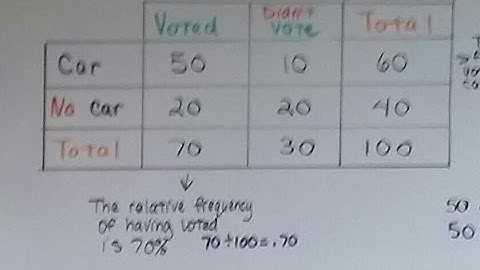 Voted Didn't Vote Total
Car 50 10 60
No car 20 20 40
Total 70 30 100
The relative frequency
of having voted
is 70% 70÷100=.70
50
50